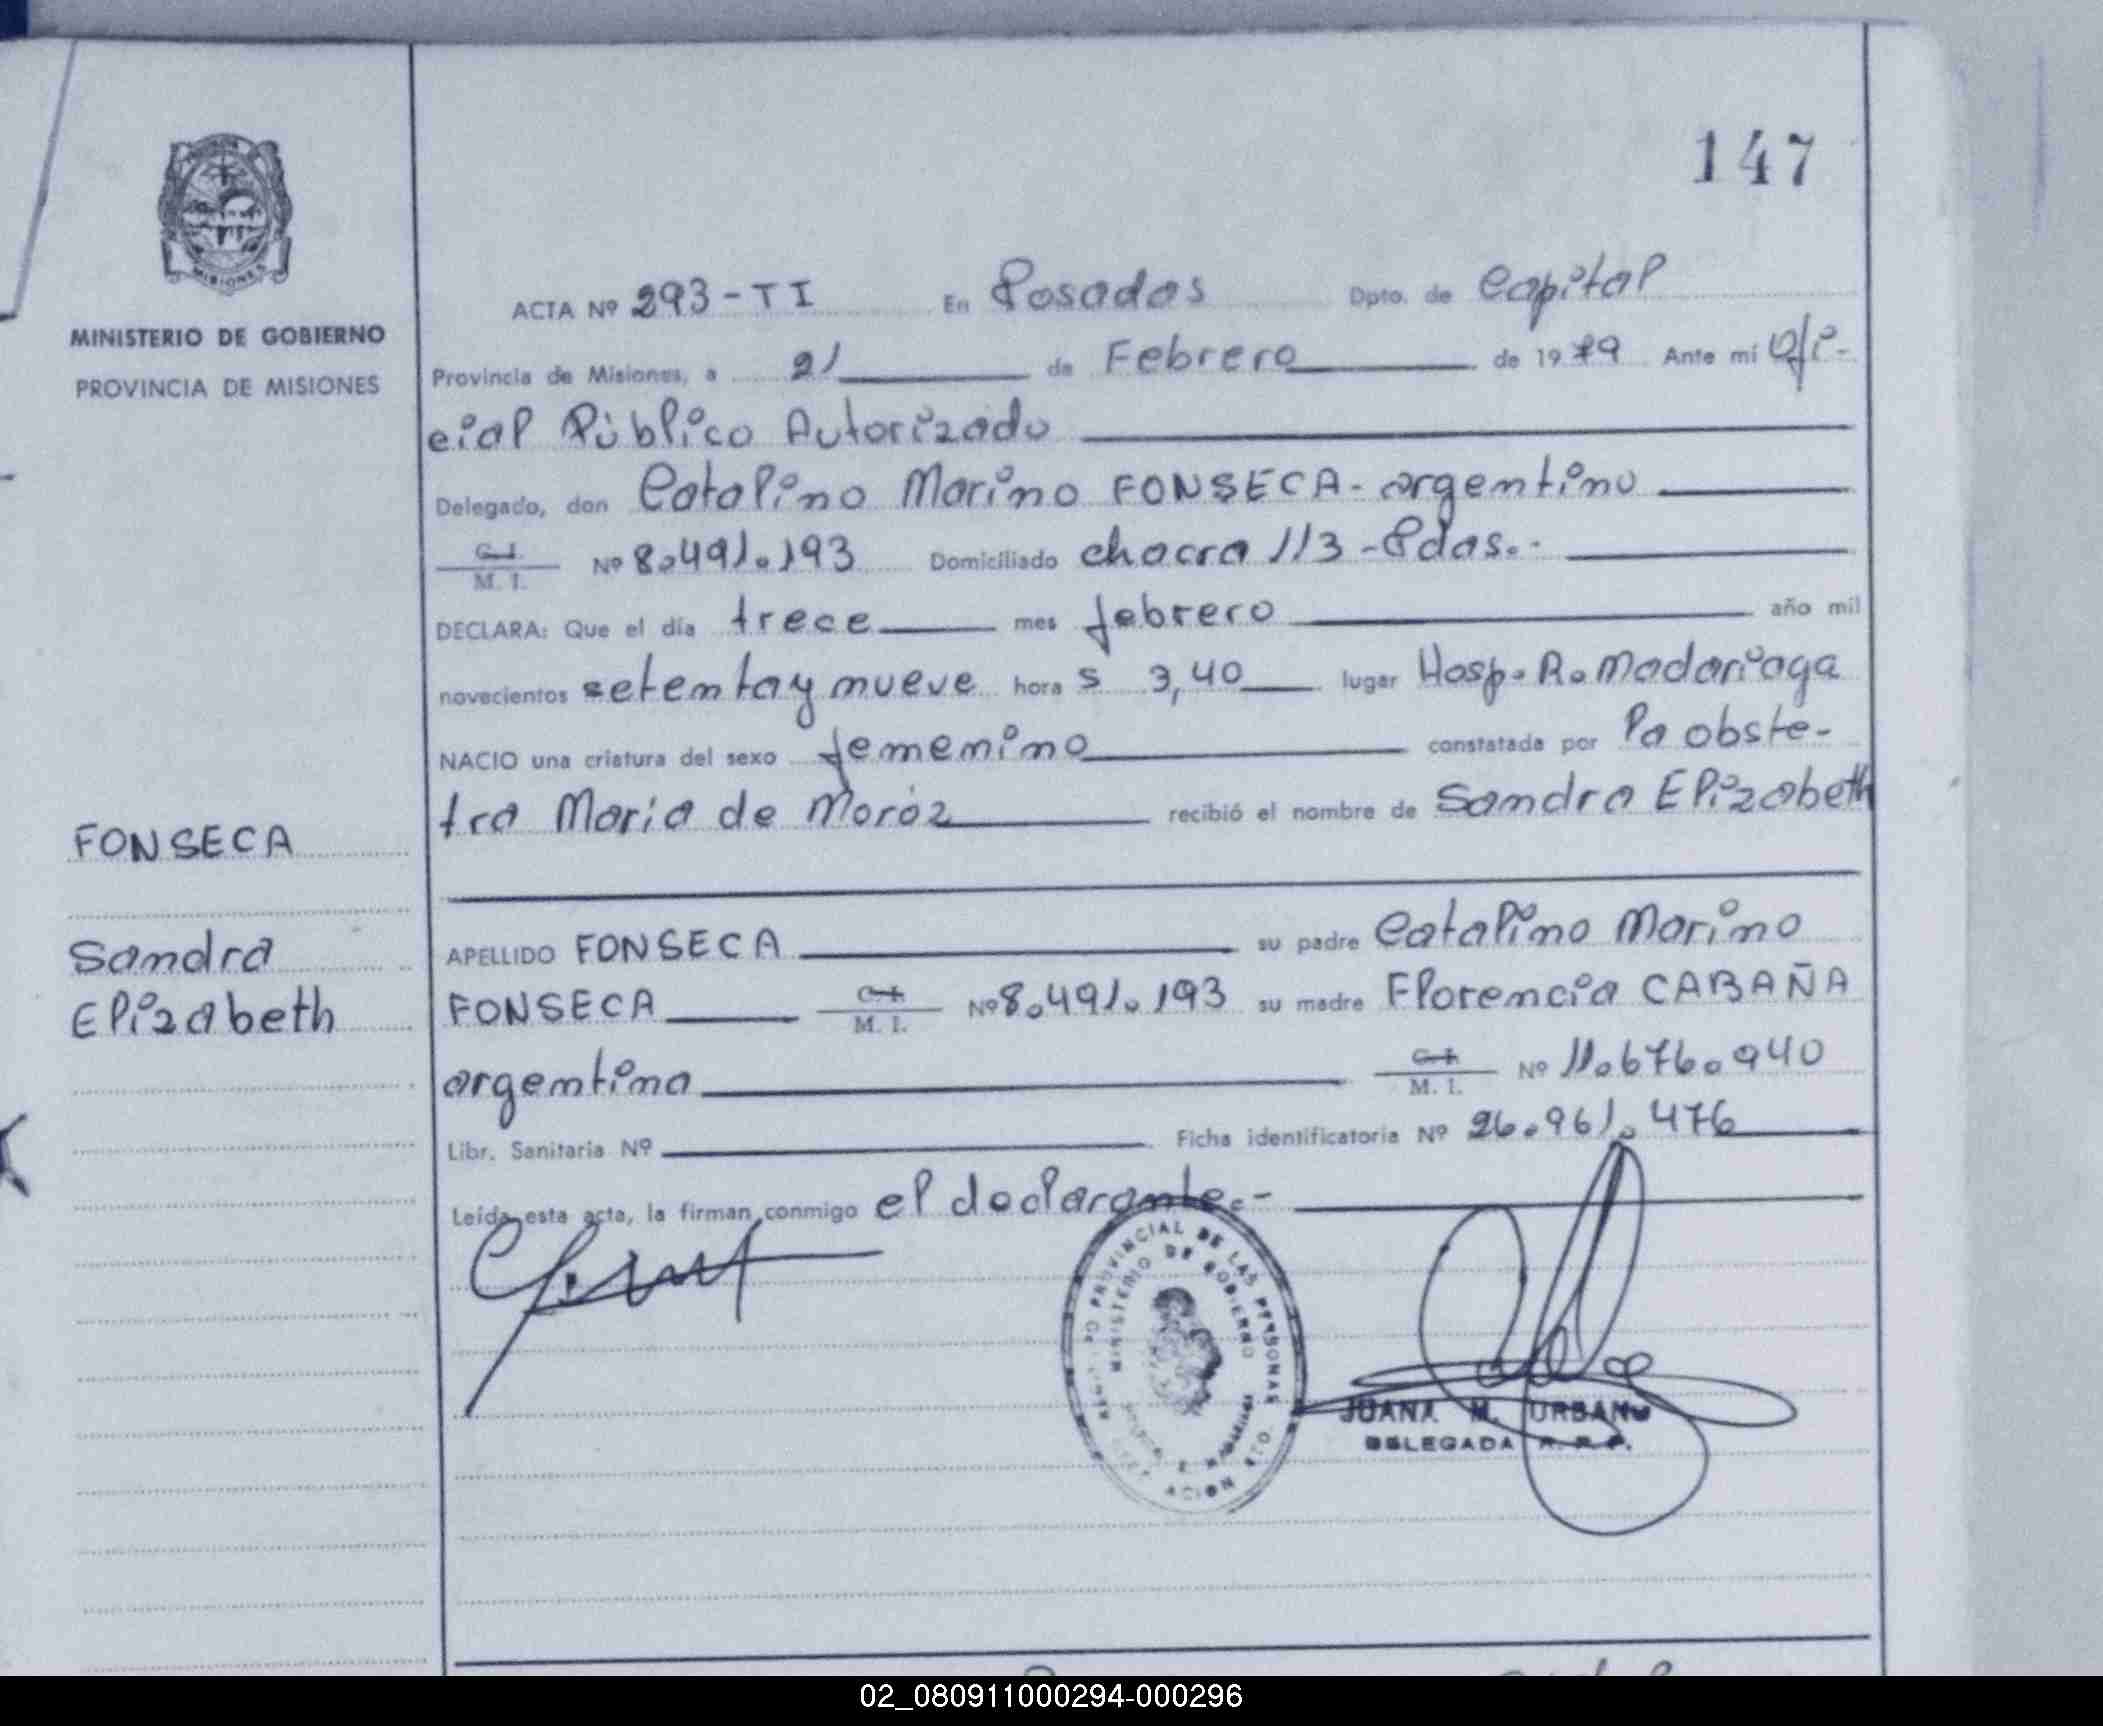 147
MISIONES
MINISTERIO DE GOBIERNO
PROVINCIA DE MISIONES
ACTA Nº 293-TI En Posadas Dpto. de Capital
Provincia de Misiones, a 21 de Febrero de 1979 Ante mí Ofi-
cial Público Autorizado
Delegado, don Catalino Marino FONSECA - argentino
C. I.
M. I. Nº 8.491.193 Domiciliado chacra 113 - Pdas.-
DECLARA: Que el día trece mes febrero año mil
novecientos setenta y nueve hora s 3,40 lugar Hosp. R. Madariaga
NACIO una criatura del sexo femenino constatada por la obste-
tra Maria de Moróz recibió el nombre de Sandra Elizabeth
FONSECA
Sandra
Elizabeth
APELLIDO FONSECA su padre Catalino Marino
FONSECA C. I. M. I. Nº 8.491.193 su madre Florencia CABAÑA
argentina C. I. M. I. Nº 11.676.940
Libr. Sanitaria Nº Ficha identificatoria Nº 26.961.476
Leída esta acta, la firman conmigo el declarante.-
PROVINCIAL DE LAS PERSONAS
MINISTERIO DE GOBIERNO
JUANA M. URBANO
DELEGADA R. P. P.
02_080911000294-000296